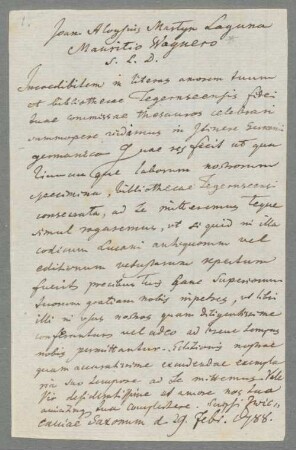 Joan. Aloysius Martyn Laguna
Mauritio Wagnero
S. L. D.
Incredibilem in literas amorem tuum
et bibliothecae Tegernseensis fidei
tuae commissae thesauros celebrari
summopere vidimus in Itinere
germanico. Quae res fecit ut qua
liacunque laborum nostrorum
specimina, bibliothecae Tegernseensi
consecrata, ad te mitteremus Teque
simul rogaremus, ut si quid in illa
codicum Lucani antiquorum vel
editionum vetustarum repertum
fuerit precibus tuis hanc Superiorum
tuorum gratiam nobis impetres, ut libri
illi in usus nostros quam diligentissime
conferantur vel adeo ad breve tempus
nobis permittantur. Editionis nostrae
quam accuratissime excudendae exempla
ria suo tempore ad te mittemus. Vale
Vir desideratissime et amore nos tua
amicitiaque tua complectere. Scripsi Zwic-
caviae Saxonum d 29 Febr. 1788.